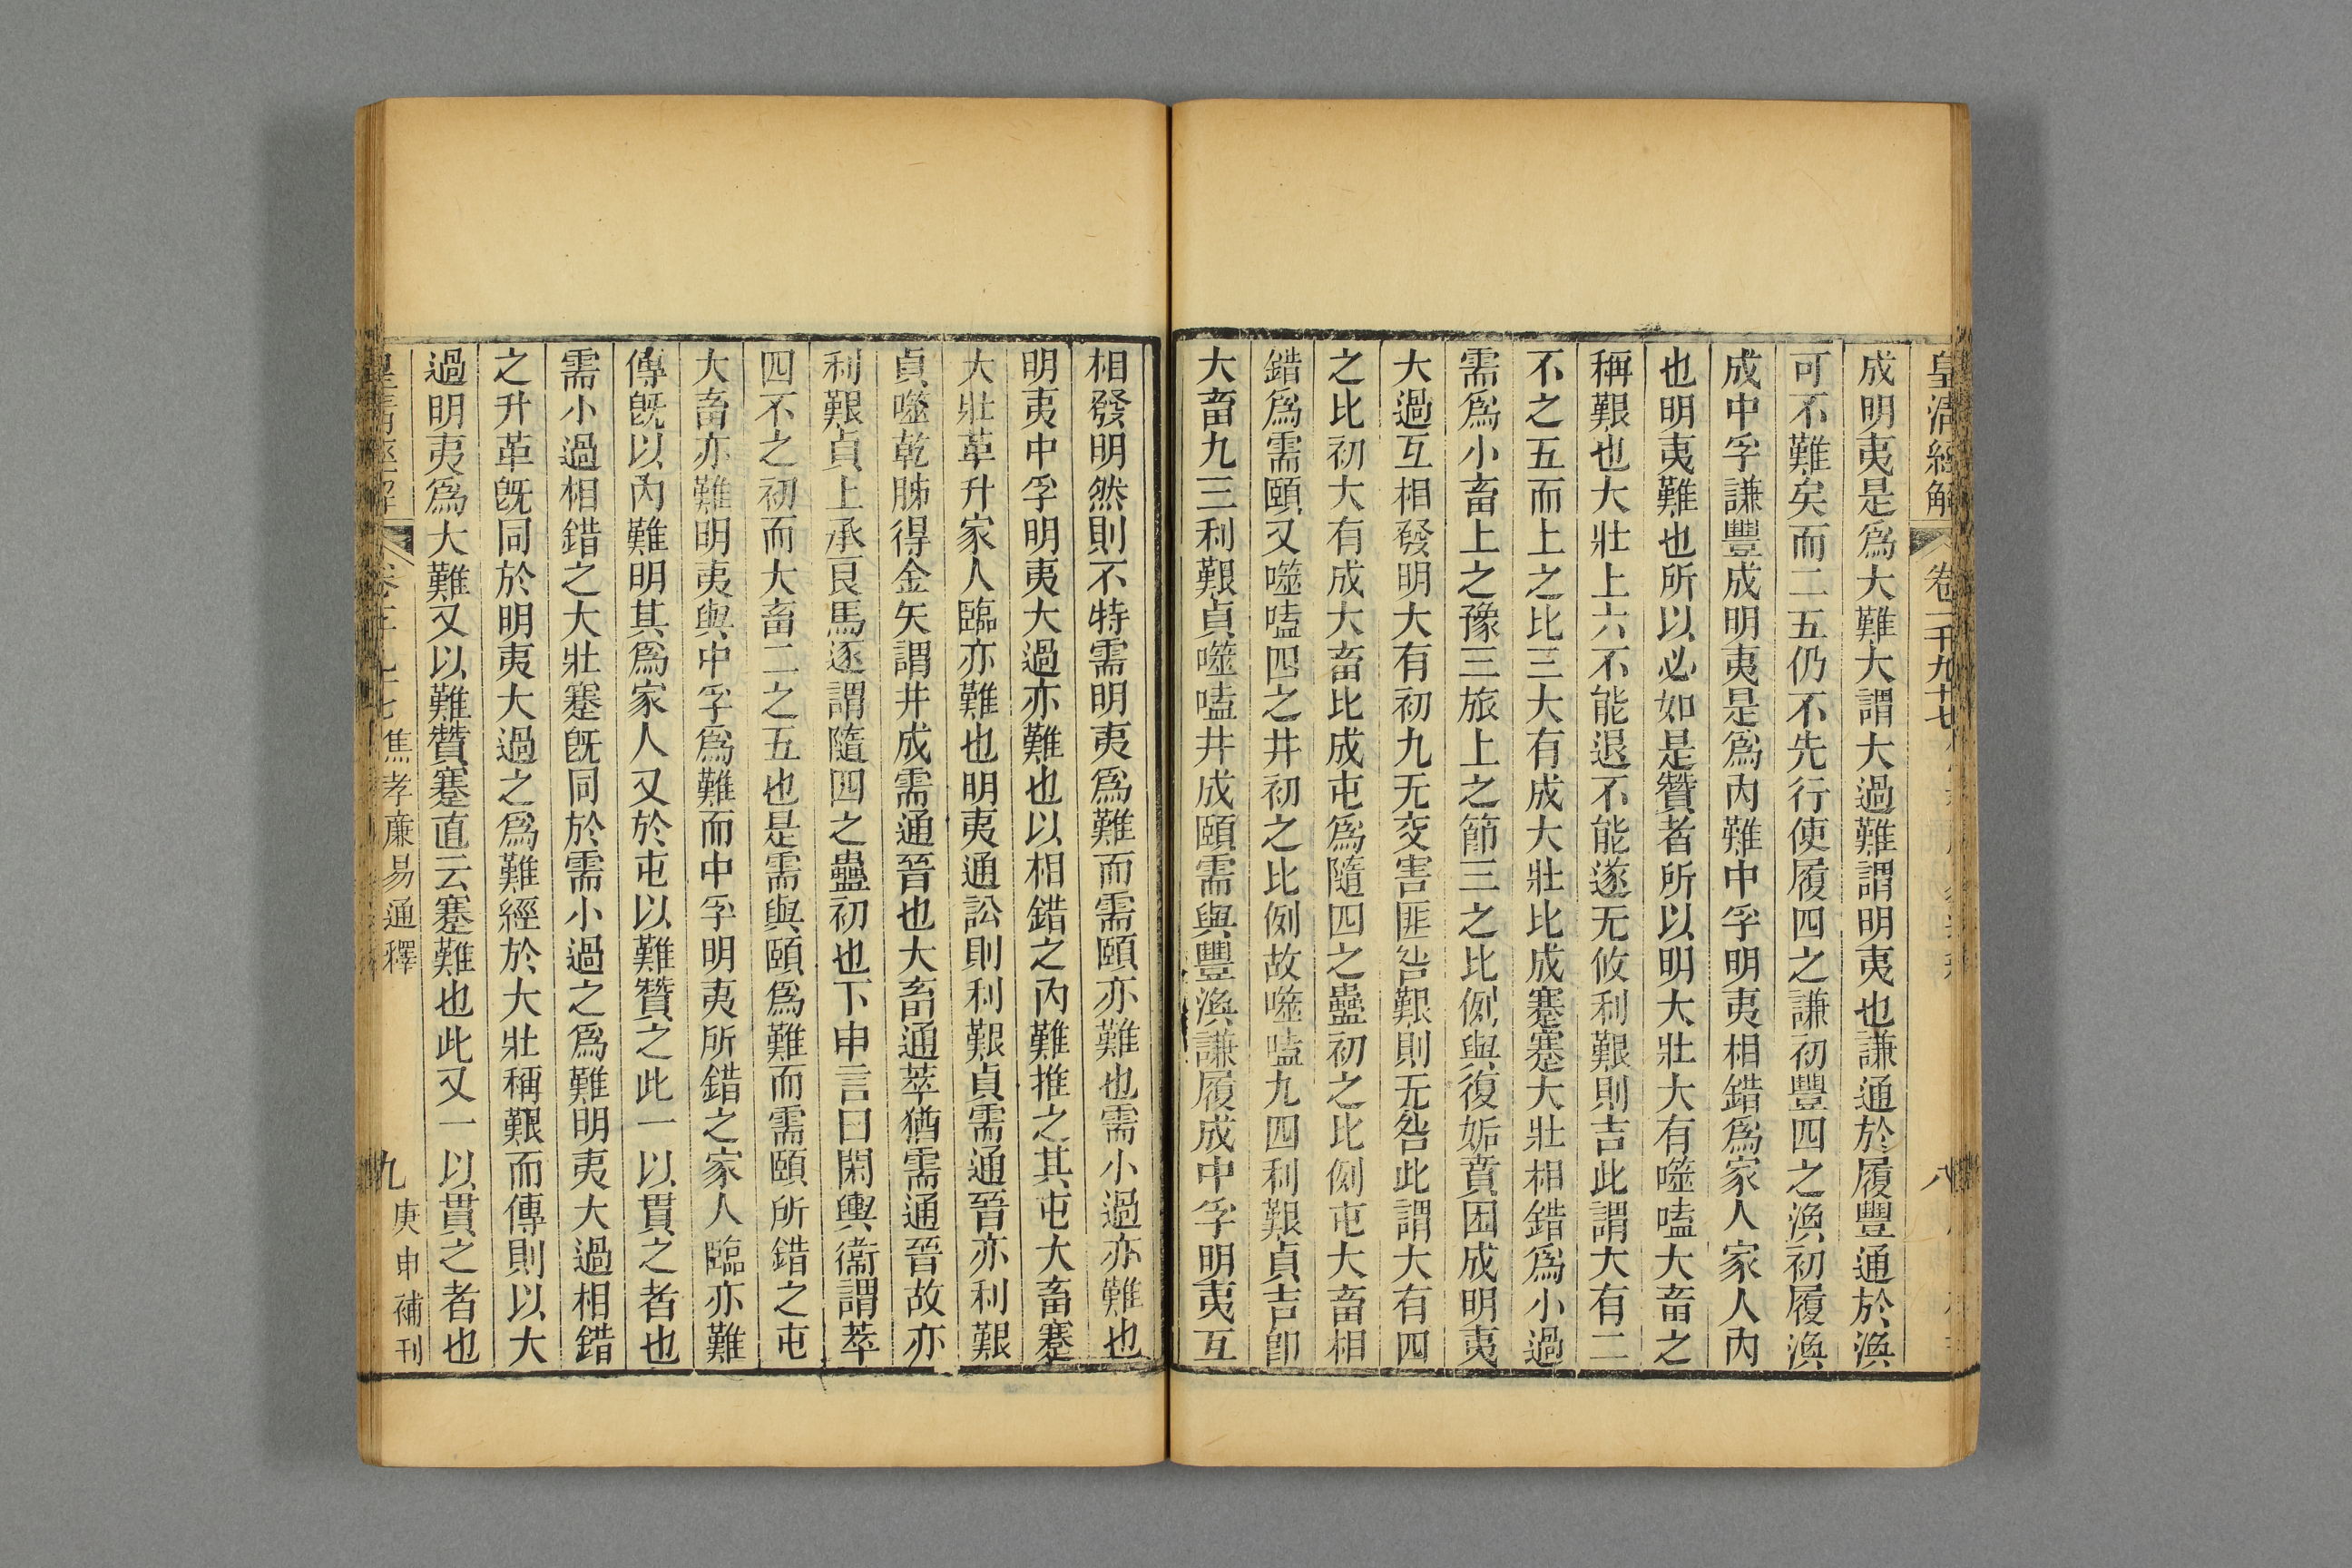 皇清經解
卷一千九十七
八
成明夷是爲大難大謂大過難謂明夷也謙通於履豐通於渙
可不難矣而二五仍不先行使履四之謙初豐四之渙初履渙
成中孚謙豐成明夷是爲內難中孚明夷相錯爲家人家人內
也明夷難也所以必如是贊者所以明大壯大有噬嗑大畜之
稱艱也大壯上六不能退不能遂无攸利艱則吉此謂大有二
不之五而上之比三大有成大壯比成蹇蹇大壯相錯爲小過
需爲小畜上之豫三旅上之節三之比例與復姤賁困成明夷
大過互相發明大有初九无交害匪咎艱則无咎此謂大有四
之比初大有成大畜比成屯爲隨四之蠱初之比例屯大畜相
錯爲需頤又噬嗑四之井初之比例故噬嗑九四利艱貞吉卽
大畜九三利艱貞噬嗑井成頤需與豐渙謙履成中孚明夷互
相發明然則不特需明夷爲難而需頤亦難也需小過亦難也
明夷中孚明夷大過亦難也以相錯之內難推之其屯大畜蹇
大壯革升家人臨亦難也明夷通訟則利艱貞需通晉亦利艱
貞噬乾胏得金矢謂井成需通晉也大畜通萃猶需通晉故亦
利艱貞上承艮馬逐謂隨四之蠱初也下申言曰閑輿衞謂萃
四不之初而大畜二之五也是需與頤爲難而需頤所錯之屯
大畜亦難明夷與中孚爲難而中孚明夷所錯之家人臨亦難
傳旣以內難明其爲家人又於屯以難贊之此一以貫之者也
需小過相錯之大壯蹇旣同於需小過之爲難明夷大過相錯
之升革旣同於明夷大過之爲難經於大壯稱艱而傳則以大
過明夷爲大難又以難贊蹇直云蹇難也此又一以貫之者也
皇清經解
焦孝廉易通釋
九
庚申補刊